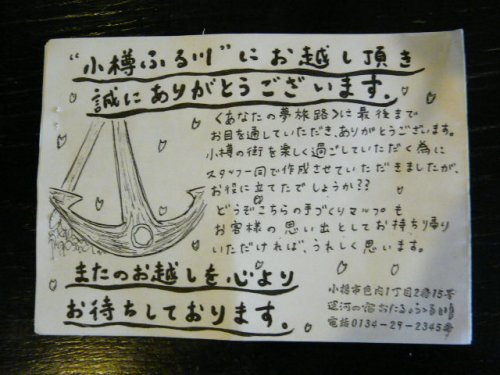 "小樽ふる川"にお越し頂き
誠にありがとうございます。
〈あなたの夢旅路〉に最後まで
お目を通していただき、ありがとうございます。
小樽の街を楽しく過ごしていただく為に
スタッフ一同で作成させていただきましたが、
お役に立てたでしょうか??
どうぞこちらの手づくりマップも
お客様の思い出としてお持ち帰り
いただければ、うれしく思います。
またのお越しを心より
お待ちしております。
小樽市色内1丁目2番15号
運河の宿おたるふる川
電話0134-29-2345番